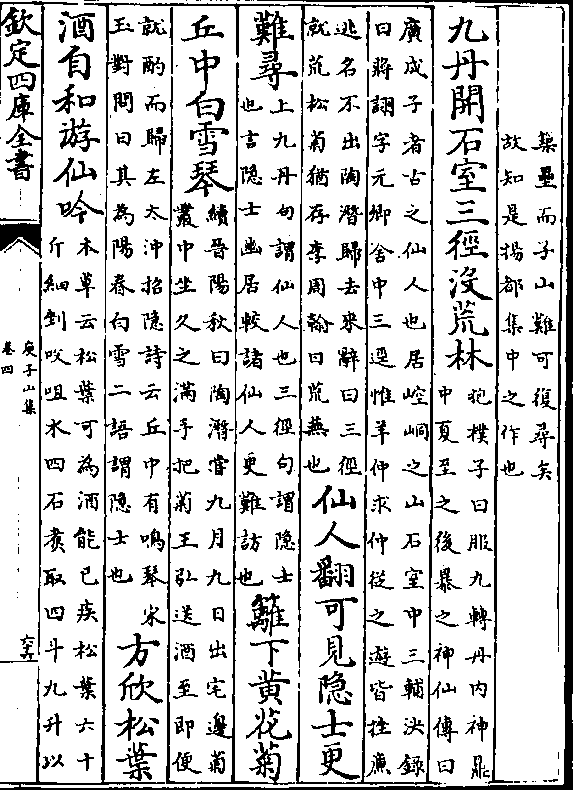 築壘而子山難可復尋矣
故知是揚都集中之作也
九丹開石室三徑沒荒林
抱樸子曰服九轉丹内神鼎
中夏至之後暴之神仙傳曰
廣成子者古之仙人也居崆峒之山石室中三輔決錄
曰蔣詡字元卿舍中三逕惟羊仲求仲從之遊皆挫廉
逃名不出陶潛歸去來辭曰三徑
就荒松菊猶存李周翰曰荒蕪也
仙人翻可見隠士更
難尋
上九丹句謂仙人也三徑句謂隠士
也言隠士幽居較諸仙人更難訪也
籬下黄花菊
丘中白雪琴
續晉陽秋曰陶潛嘗九月九日出宅邊菊
叢中坐久之滿手把菊王弘送酒至即便
就酌而歸左太沖招隠詩云丘中有鳴琴宋
玉對問曰其為陽春白雪二語謂隠士也
方欣松葉
酒自和遊仙吟
本草云松葉可為酒能已疾松葉六十
斤細剉㕮咀水四石煮取四斗九升以
欽定四庫全書
庾子山集
卷四